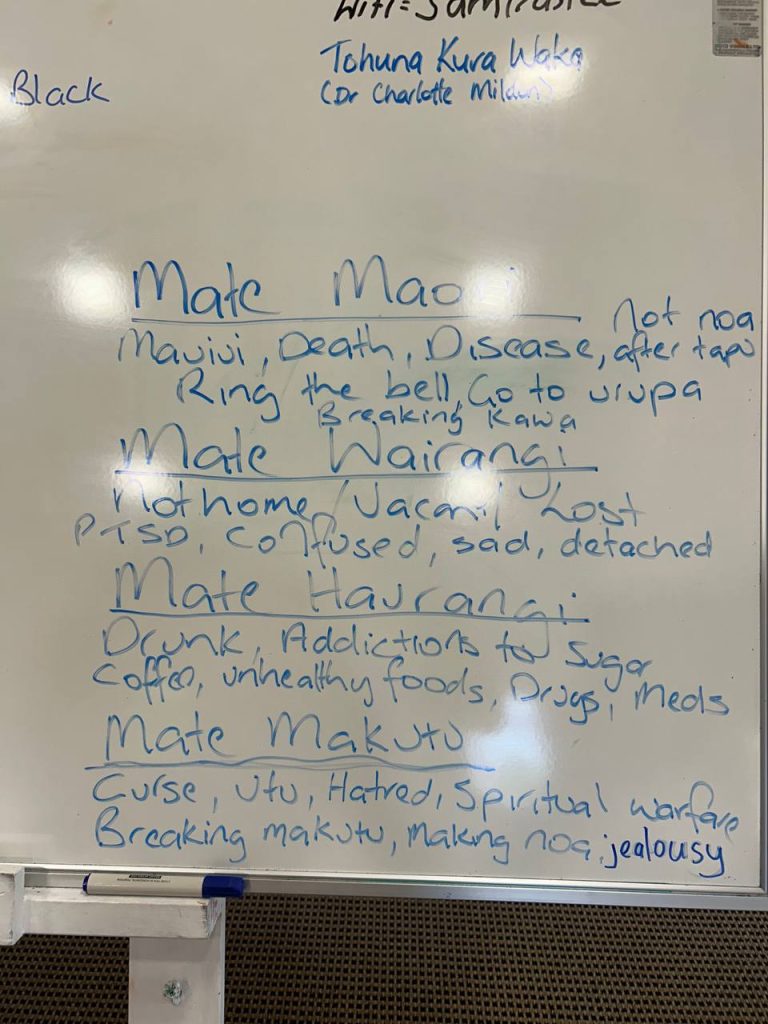 Wifi =
Tohuna Kura Waka
(Dr Charlotte Mildon)
Black
Mate Maori
not noa
Mauiui, Death, Disease, after tapu
Ring the bell, Go to urupa
Breaking Kawa
Mate Wairangi
Not home / Vacant / Lost
PTSD, confused, sad, detached
Mate Haurangi
Drunk, Addictions to Sugar
Coffee, unhealthy foods, Drugs, Meds
Mate Makutu
Curse, Utu, Hatred, Spiritual warfare
Breaking makutu, making noa, jealousy